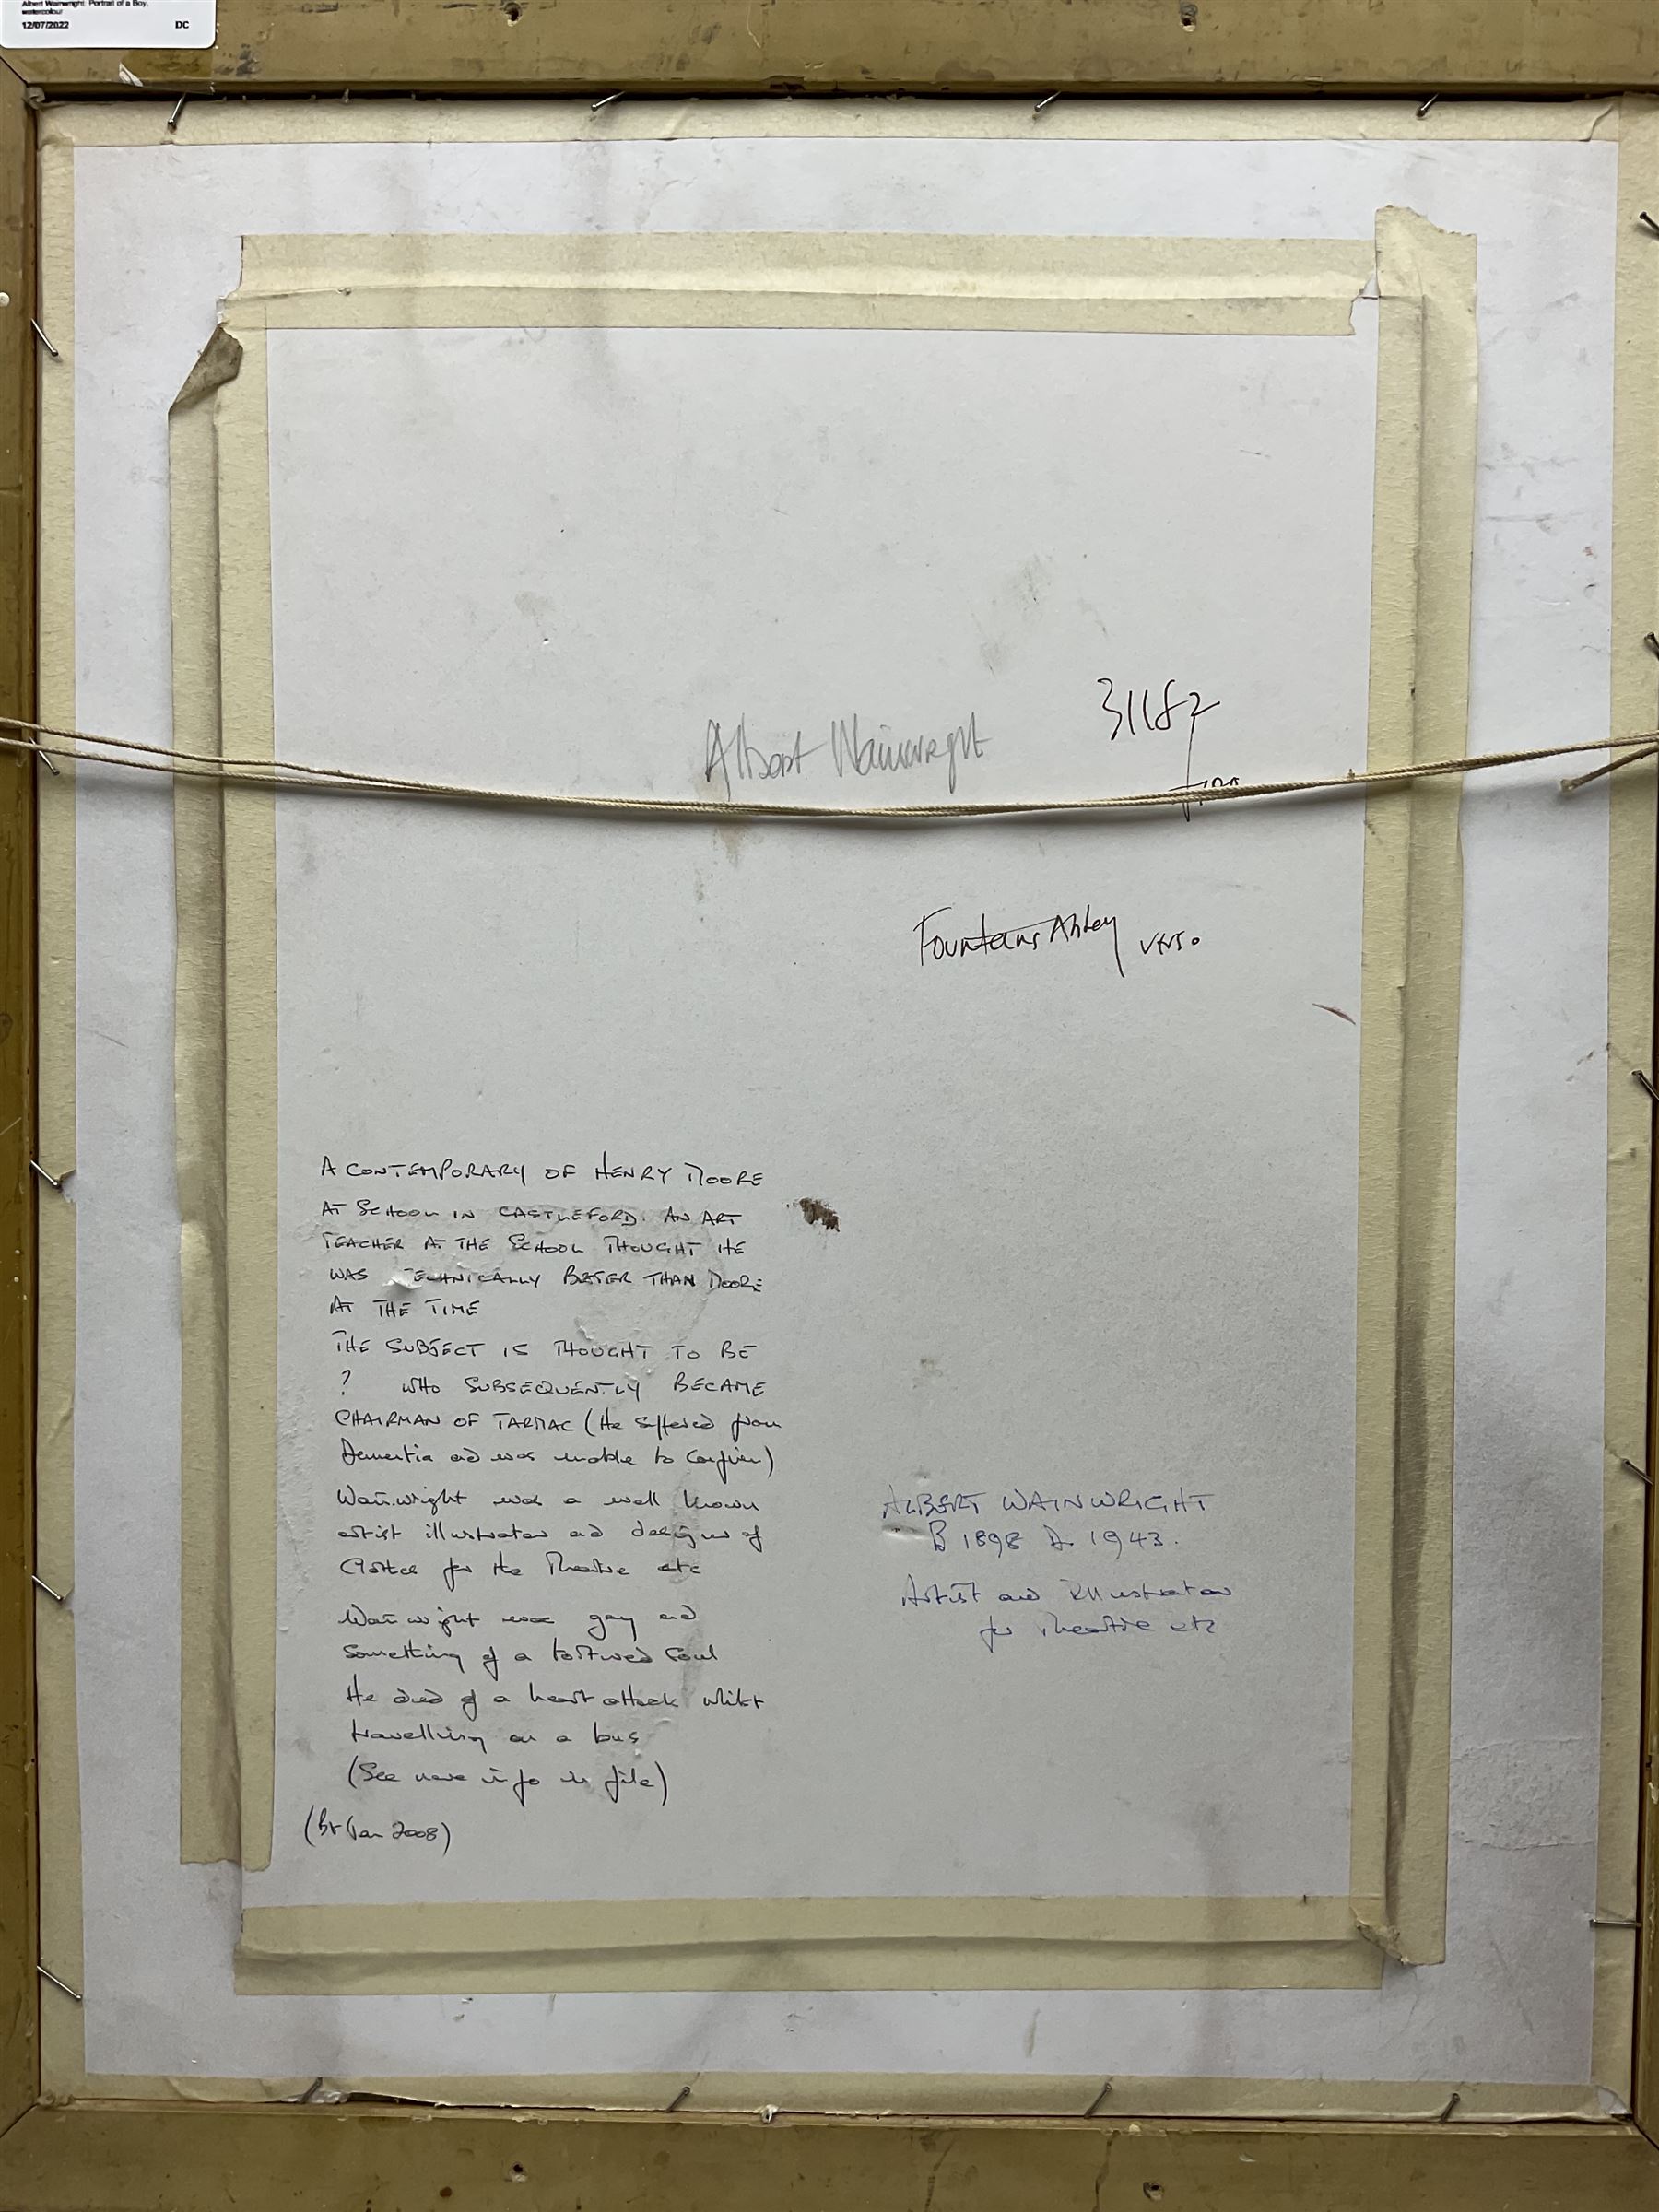 Albert Wainwright: Portrait of a Boy,
watercolour
12/07/2022 DC
31182
Albert Wainwright
Fountains Abbey verso
A CONTEMPORARY OF HENRY MOORE
AT SCHOOL IN CASTLEFORD. AN ART
TEACHER AT THE SCHOOL THOUGHT HE
WAS TECHNICALLY BETTER THAN MOORE
AT THE TIME
THE SUBJECT IS THOUGHT TO BE
? WHO SUBSEQUENTLY BECAME
CHAIRMAN OF TARMAC (He suffered from
Dementia and was unable to confirm)
Wainwright was a well known
artist illustrator and designer of
Clothes for the Theatre etc
Wainwright was gay and
something of a tortured soul
He died of a heart attack whilst
travelling on a bus
(See more info in file)
(Bt Jan 2008)
ALBERT WAINWRIGHT
B 1898 D. 1943.
Artist and Illustrator
for Theatre etc